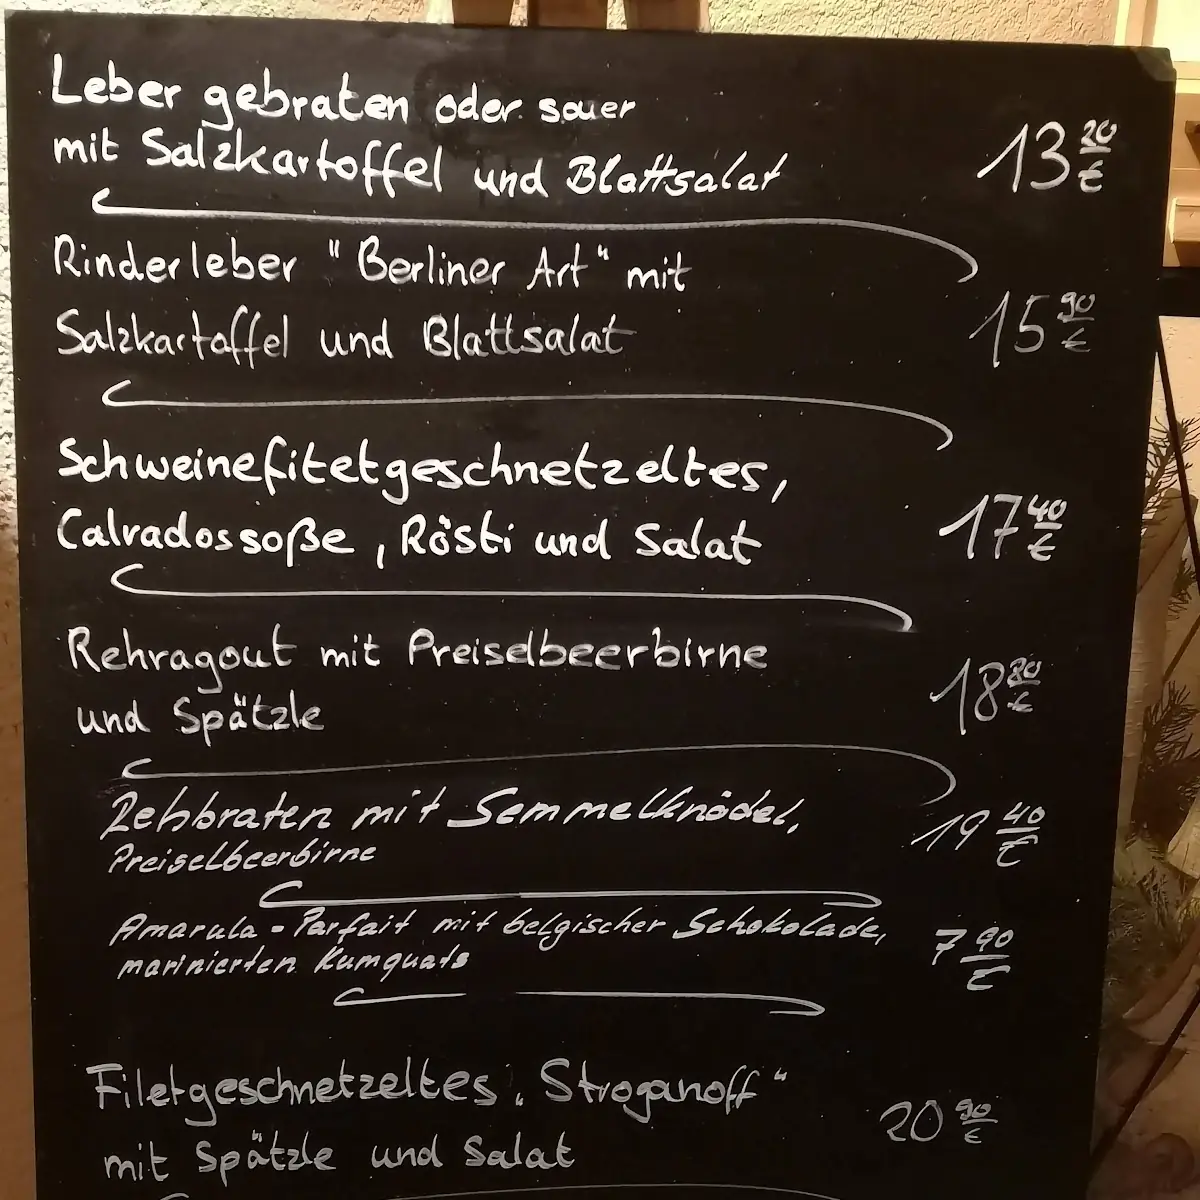 Leber gebraten oder sauer
mit Salzkartoffel und Blattsalat
13 20 €
Rinderleber "Berliner Art" mit
Salzkartoffel und Blattsalat
15 90 €
Schweinefiletgeschnetzeltes,
Calvadossoße, Rösti und Salat
17 40 €
Rehragout mit Preiselbeerbirne
und Spätzle
18 80 €
Rehbraten mit Semmelknödel,
Preiselbeerbirne
19 40 €
Amarula-Parfait mit belgischer Schokolade,
marinierten Kumquats
7 90 €
Filetgeschnetzeltes „Stroganoff"
mit Spätzle und Salat
20 90 €